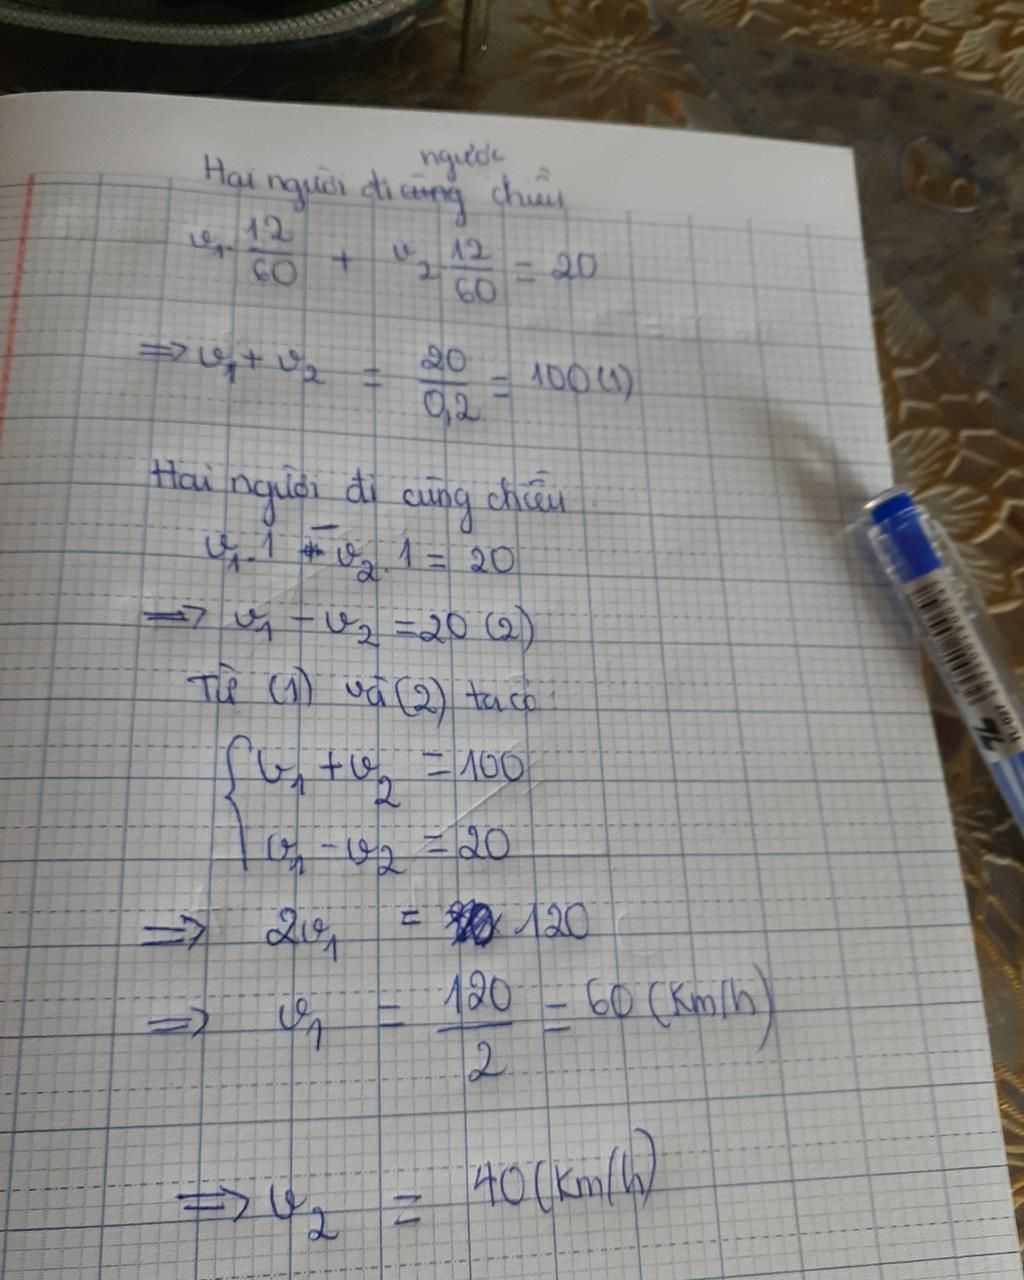 ngược
Hai người đi cùng chiều
v₁. 12/60 + v₂ 12/60 = 20
=> v₁ + v₂ = 20/0,2 = 100 (1)
Hai người đi cùng chiều
v₁. 1 - v₂. 1 = 20
=> v₁ - v₂ = 20 (2)
Từ (1) và (2) ta có:
{ v₁ + v₂ = 100
v₁ - v₂ = 20
=> 2v₁ = 120
=> v₁ = 120/2 = 60 (Km/h)
=> v₂ = 40 (Km/h)
TL